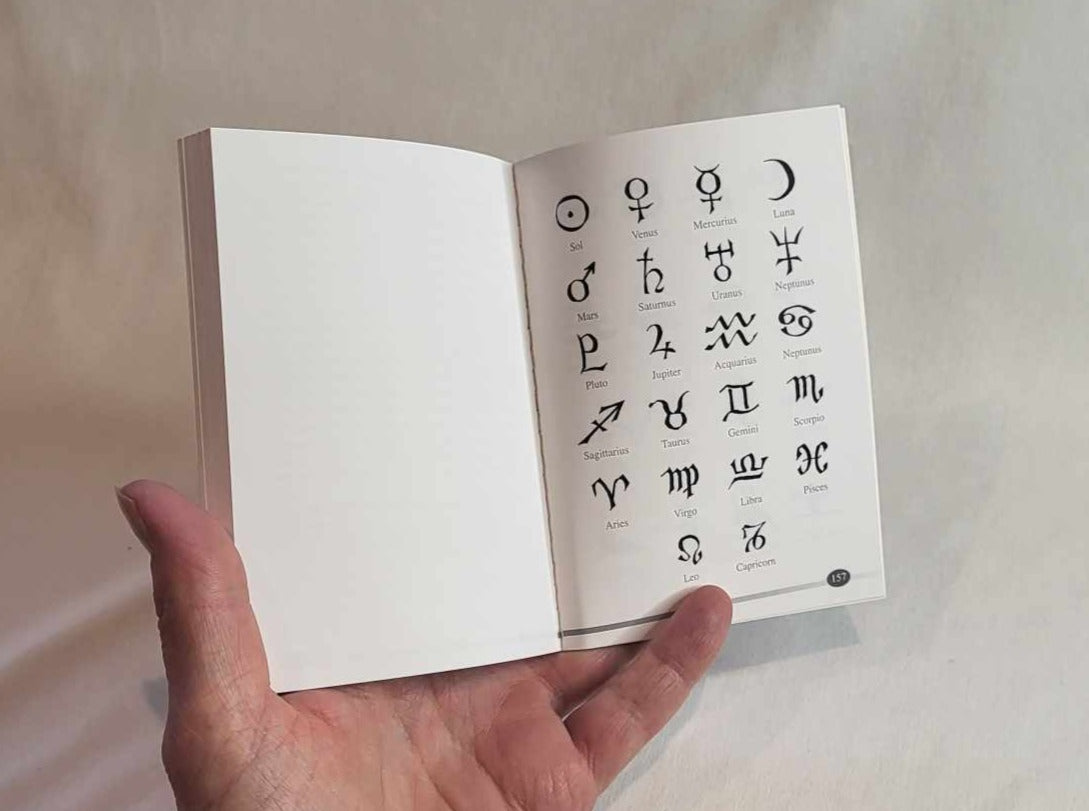 Sol Venus Mercurius Luna
Mars Saturnus Uranus Neptunus
Pluto Jupiter Acquarius Neptunus
Sagittarius Taurus Gemini Scorpio
Aries Virgo Libra Pisces
Leo Capricorn
157